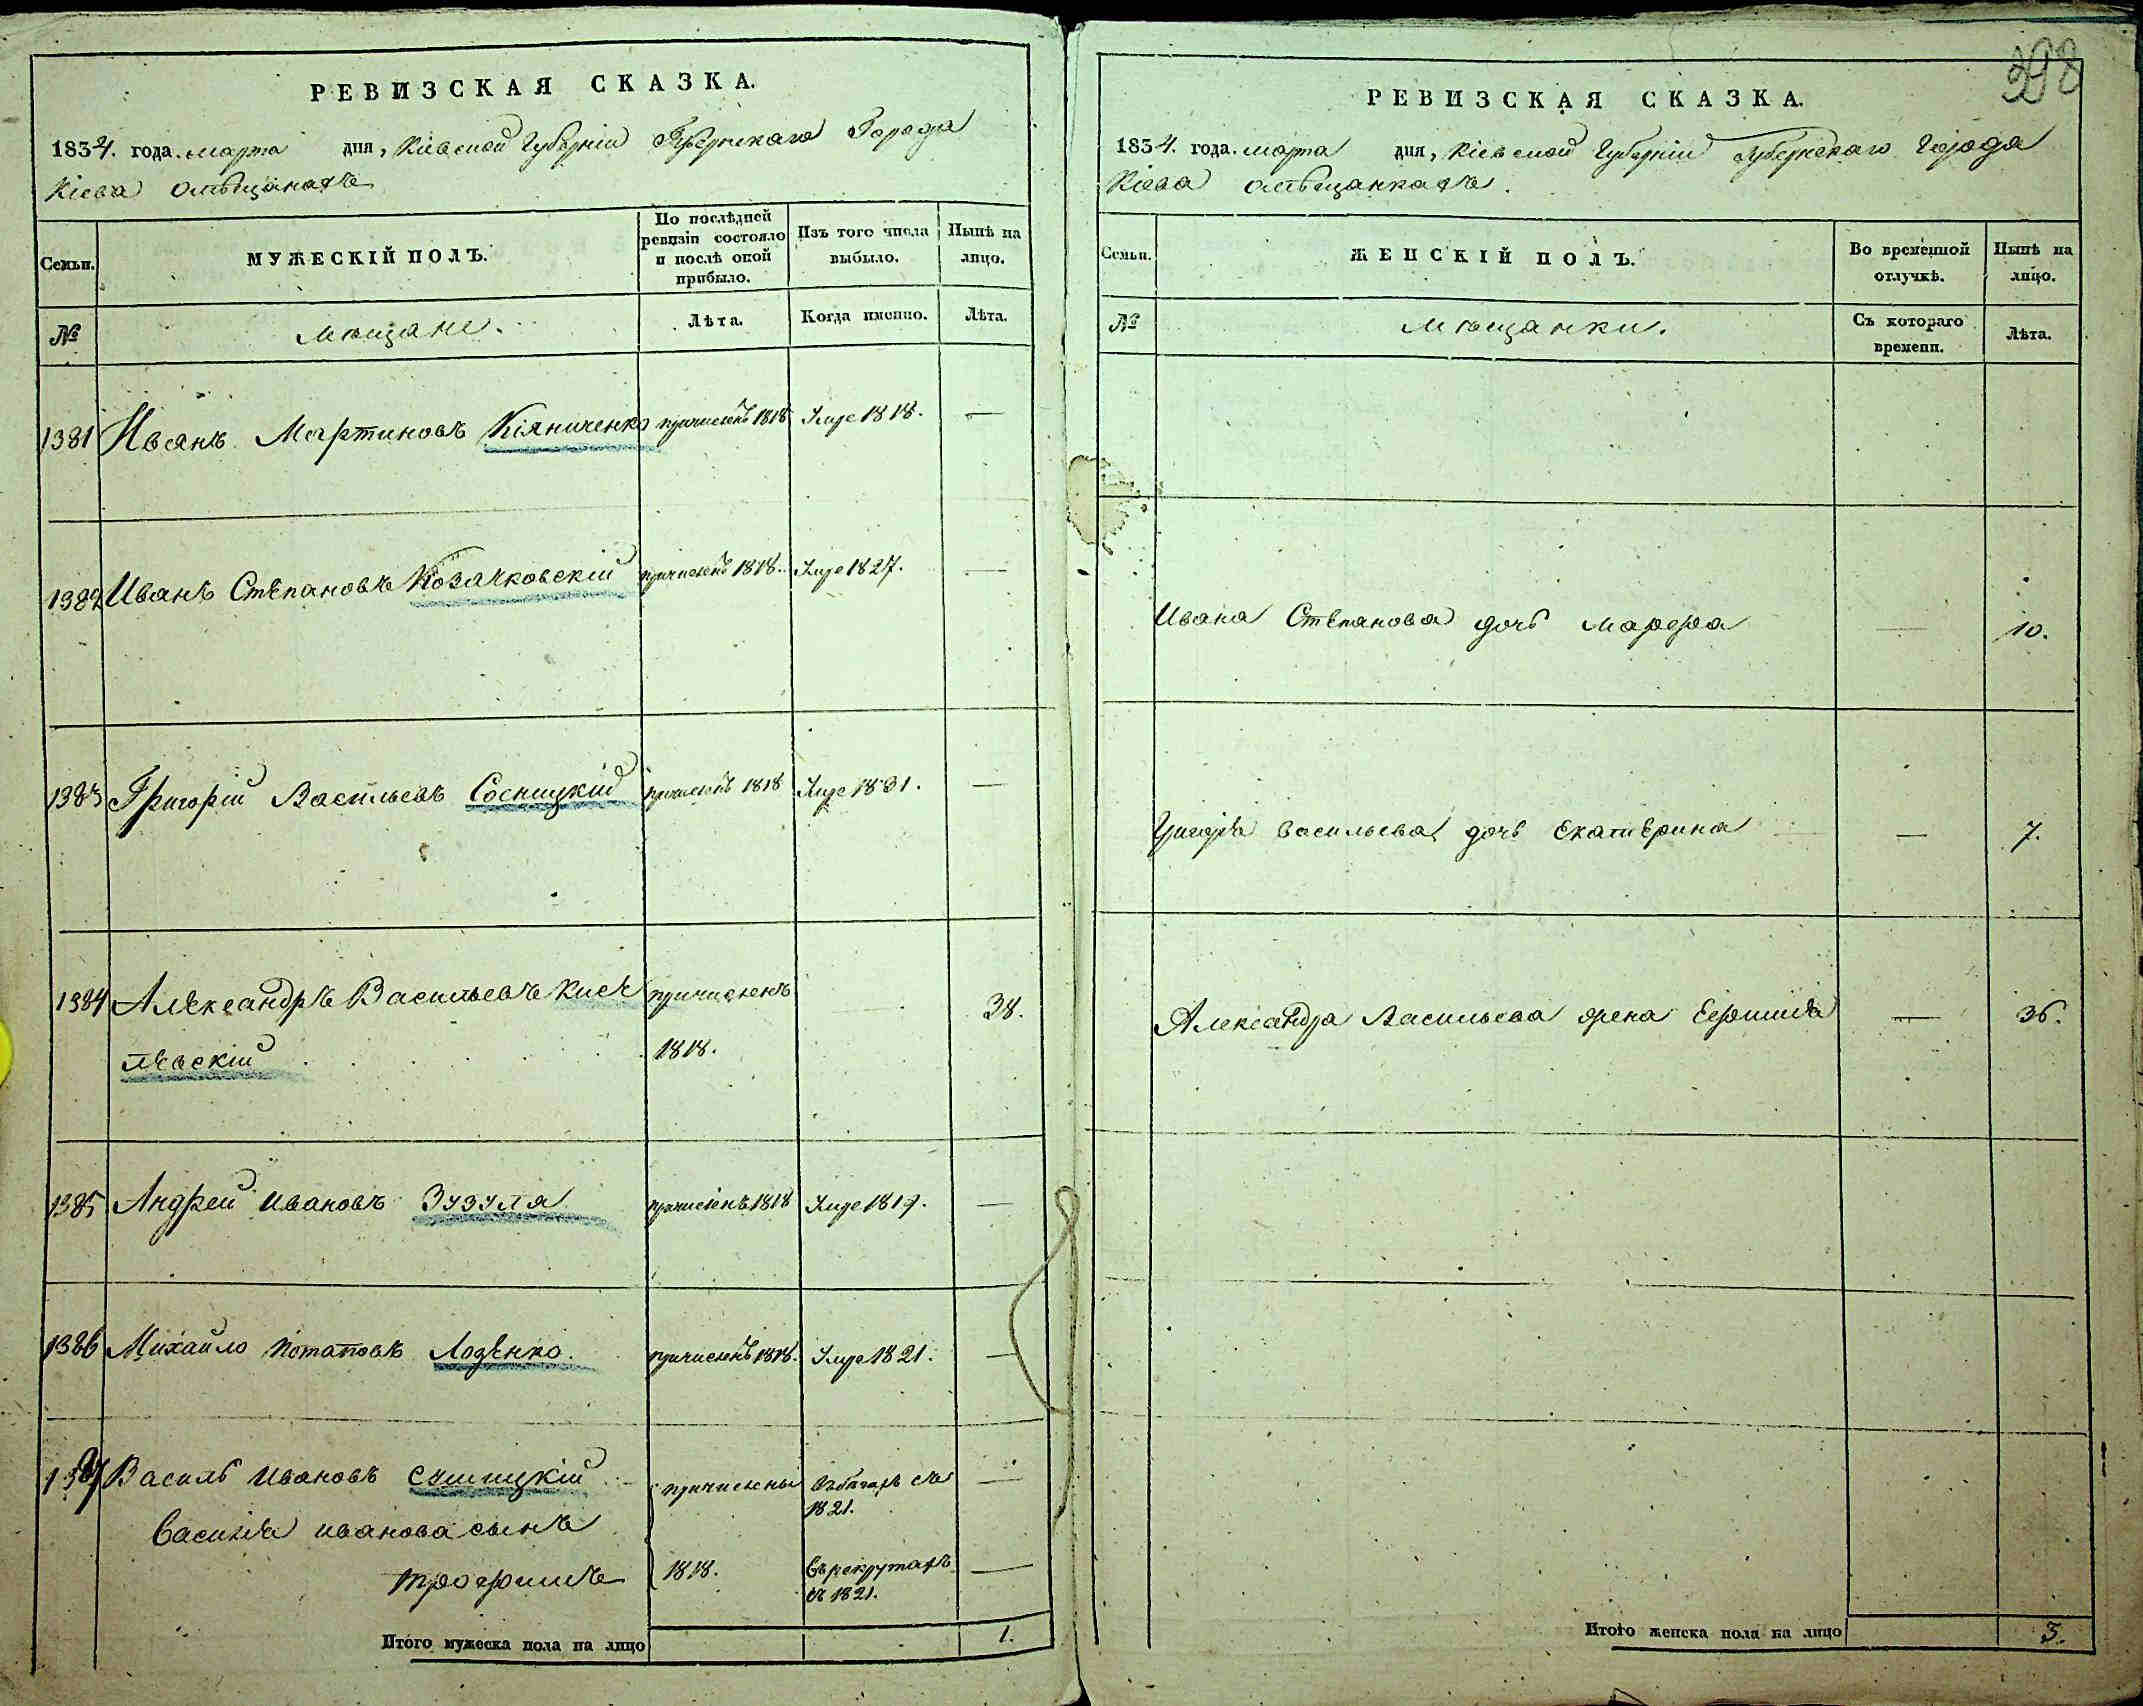 РЕВИЗСКАЯ СКАЗКА.
1834. года. марта дня, Кіевской Губерніи Губернскаго Города
Кіева омѣщанахъ
Семьи.
МУЖЕСКІЙ ПОЛЪ.
По послѣдней ревизіи состояло и послѣ оной прибыло.
Изъ того числа выбыло.
Нынѣ на лицо.
№
мѣщане.
Лѣта.
Когда именно.
Лѣта.
1381 Иванъ Мартиновъ Кіяниченко причисленъ 1818 Умре 1818. —
1382 Иванъ Степановъ Козачковскій причисленъ 1818. Умре 1827. —
1383 Григорій Васильевъ Сосницкій причисленъ 1818 Умре 1831. —
1384 Александръ Васильевъ Кисе причисленъ 38.
левскій 1818.
1385 Андрей Ивановъ Зузуля причисленъ 1818 Умре 1819. —
1386 Михайло Потаповъ Лоденко. причисленъ 1818. Умре 1821. —
1387 Василь Ивановъ причислены съ —
1821.
Василя Иванова сынъ
Трофимъ 1818. Въ рекрутахъ —
съ 1821.
Итого мужеска пола на лицо 1.
398
РЕВИЗСКАЯ СКАЗКА.
1834. года. марта дня, Кіевской Губерніи Губернскаго Города
Кіева омѣщанкахъ.
Семьи.
ЖЕНСКІЙ ПОЛЪ.
Во временной отлучкѣ.
Нынѣ на лицо.
№
мѣщанки.
Съ котораго времени.
Лѣта.
Ивана Степанова дочь Марфа — 10.
Григорія Васильева дочь Екатерина — 7.
Александра Васильева жена Ефимія — 36.
Итого женска пола на лицо 3.